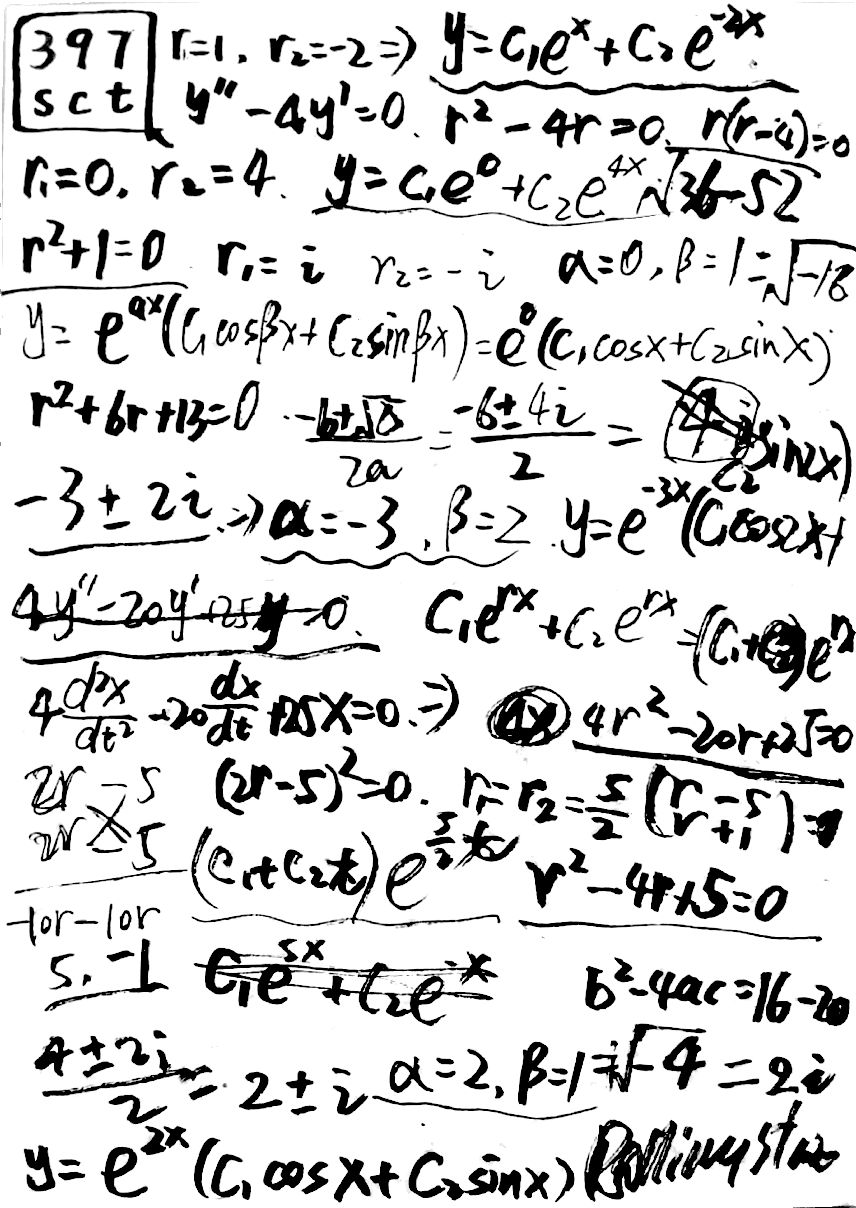 397 r₁=1, r₂=-2 ⇒ y=C₁eˣ+C₂e⁻²ˣ
sct y''-4y'=0. r²-4r=0. r(r-4)=0
r₁=0, r₂=4. y=C₁e⁰+C₂e⁴ˣ √36-52
r²+1=0 r₁=i r₂=-i α=0, β=1 =√-16
y=e^{αx}(C₁cosβx+C₂sinβx)=e⁰(C₁cosx+C₂sinx)
r²+6r+13=0 = (-6±4i)/2 = sin2x)
-3±2i ⇒ α=-3, β=2. y=e⁻³ˣ(C₁cos2x+ C₂
4y''-20y'+25y=0. C₁e^{rx}+C₂e^{rx}=(C₁+C₂)e^{rx}
4 d²x/dt² -20 dx/dt +25x=0. ⇒ 4r²-20r+25=0
2r -5 (2r-5)²=0. r₁=r₂=5/2 (r-5
2r -5 r+1)=0
(C₁+C₂t)e^{5/2 t} r²-4r+5=0
-10r-10r
5, -1 C₁e⁵ˣ+C₂e⁻ˣ b²-4ac=16-20
(4±2i)/2 = 2±i α=2, β=1 =√-4 = 2i
y=e²ˣ(C₁cosx+C₂sinx)